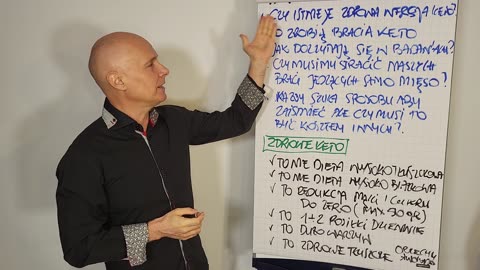 CZY ISTNIEJE ZDROWA WERSJA KETO?
CO ZROBIĄ BRACIA KETO
JAK DOCZYTAJĄ SIĘ W BADANIACH?
CZY MUSIMY STRACIĆ NASZYCH
BRACI JEDZĄCYCH SAMO MIĘSO?
KAŻDY SZUKA SPOSOBU ABY
ZAISTNIEĆ ALE CZY MUSI TO
BYĆ KOSZTEM INNYCH?
ZDROWE KETO
✓ TO NIE DIETA WYSOKOTŁUSZCZOWA
✓ TO NIE DIETA WYSOKO BIAŁKOWA
✓ TO REDUKCJA MĄKI I CUKRU
DO ZERO (MAX 50 gr)
✓ TO 1-2 POSIŁKI DZIENNIE
✓ TO DUŻO WARZYW
✓ TO ZDROWE TŁUSZCZE ORZECHY